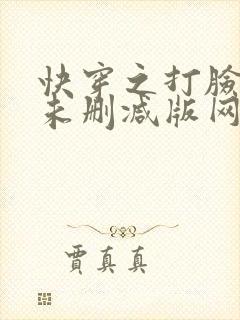 快穿之打脸
未删减版网
贾真真